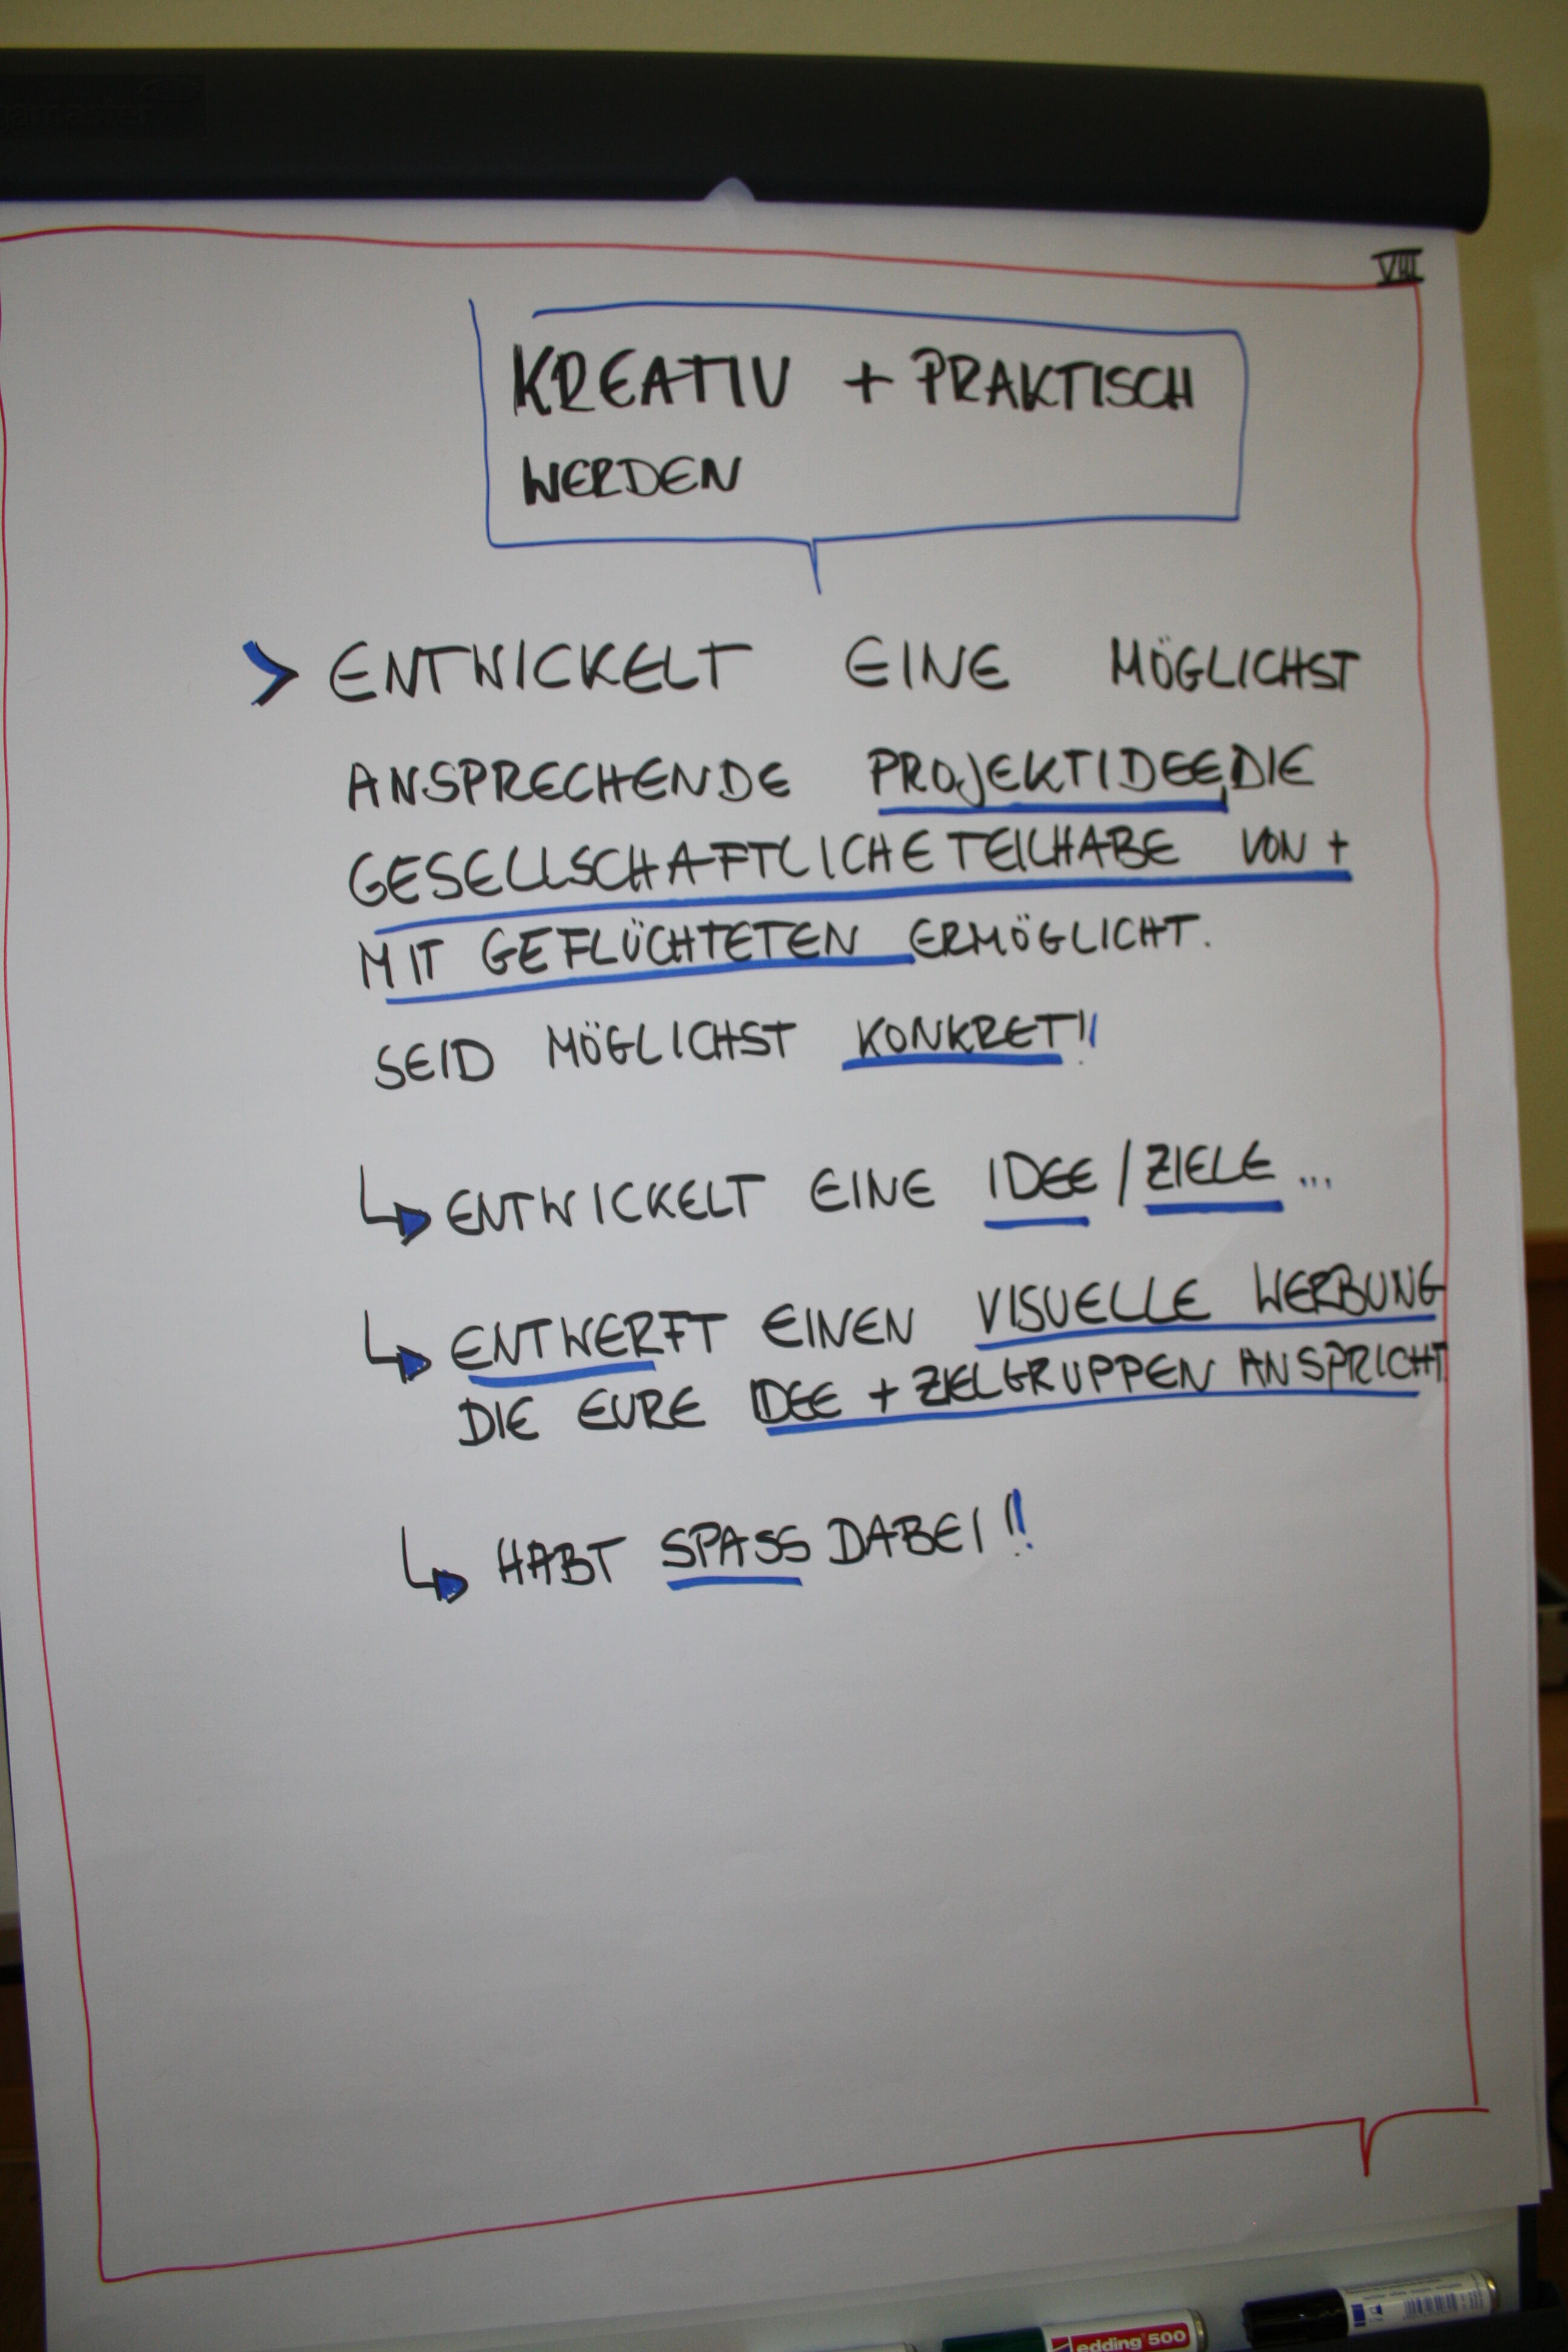 VIII
KREATIV + PRAKTISCH
WERDEN
> ENTWICKELT EINE MÖGLICHST
ANSPRECHENDE PROJEKTIDEE, DIE
GESELLSCHAFTLICHE TEILHABE VON +
MIT GEFLÜCHTETEN ERMÖGLICHT.
SEID MÖGLICHST KONKRET!!
ENTWICKELT EINE IDEE / ZIELE ...
ENTWERFT EINEN VISUELLE WERBUNG
DIE EURE IDEE + ZIELGRUPPEN ANSPRICHT
HABT SPASS DABEI!!
edding 500